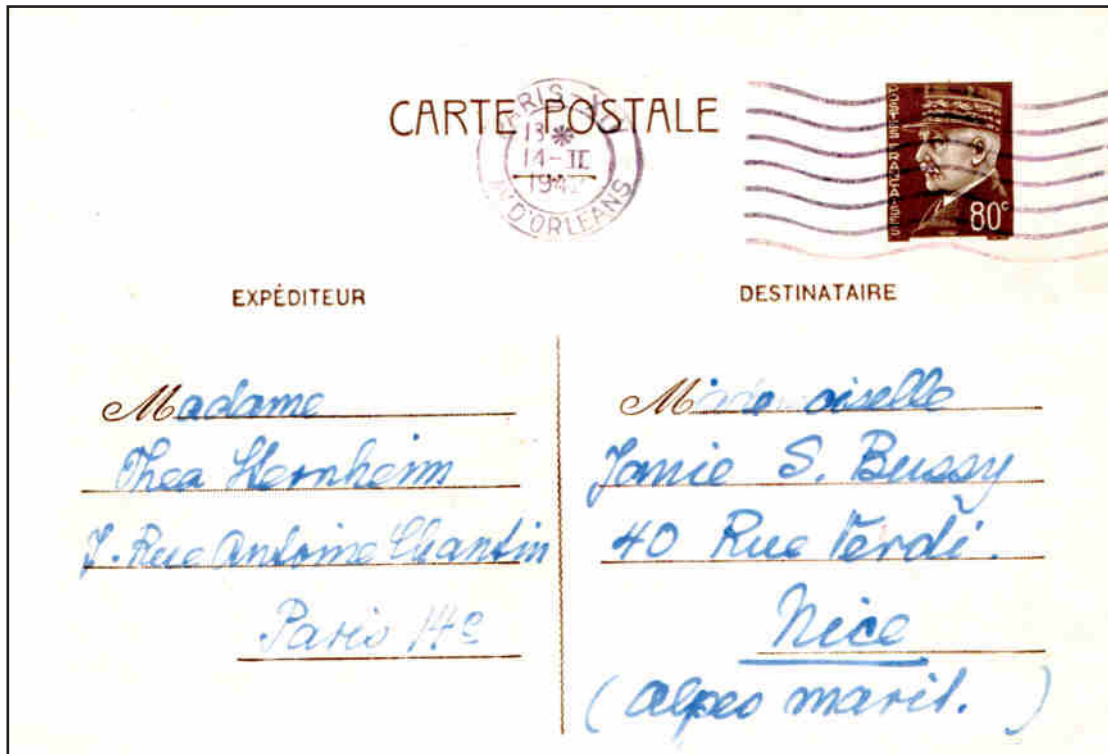 CARTE POSTALE
13
14-II
AV D'ORLEANS
POSTES FRANÇAISES
80c
EXPÉDITEUR
DESTINATAIRE
Madame
Thea Sternheim
7. Rue Antoine Chantin
Paris 14e
Mademoiselle
Janie S. Bussy
40 Rue Verdi.
Nice
(alpes marit. )